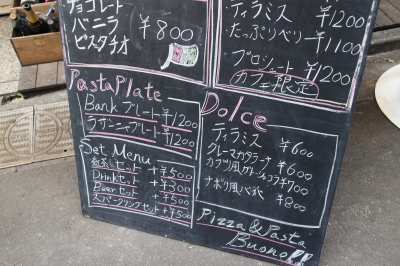 チョコレート
バニラ ¥800
ピスタチオ
ティラミス ¥1200
たっぷりベリー ¥1100
プロシュート ¥1200
カフェ限定
Pasta Plate
Bank プレート ¥1200
ラザニアプレート ¥1200
Set Menu
前菜セット +¥500
Drinkセット +¥300
Beerセット +¥500
スパークリングセット +¥500
Dolce
ティラミス ¥600
クレーマカタラーナ ¥600
カプリ風ガトーショコラ ¥700
ナポリ風ババ ¥800
Pizza & Pasta
Buono